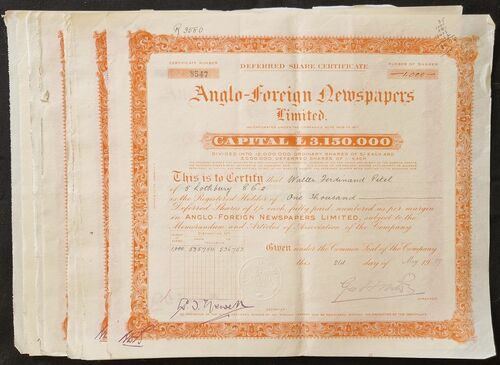 R 3080
CERTIFICATE NUMBER
DEFERRED SHARE CERTIFICATE
NUMBER OF SHARES
3547
1,000
Anglo-Foreign Newspapers
Limited.
INCORPORATED UNDER THE COMPANIES ACTS 1908 TO 1917
CAPITAL £3,150,000
DIVIDED INTO 12,000,000 ORDINARY SHARES OF 5/- EACH AND
3,000,000 DEFERRED SHARES OF 1/- EACH
This is to Certify that Walter Ferdinand
of 5 Lothbury E.C.2
is the Registered Holder of One Thousand
Deferred Shares of 1/- each fully paid numbered as per margin
in ANGLO-FOREIGN NEWSPAPERS LIMITED, subject to the
Memorandum and Articles of Association of the Company
Given under the Common Seal of the Company
1,000
this 21st day of May 19
DIRECTORS
SECRETARY